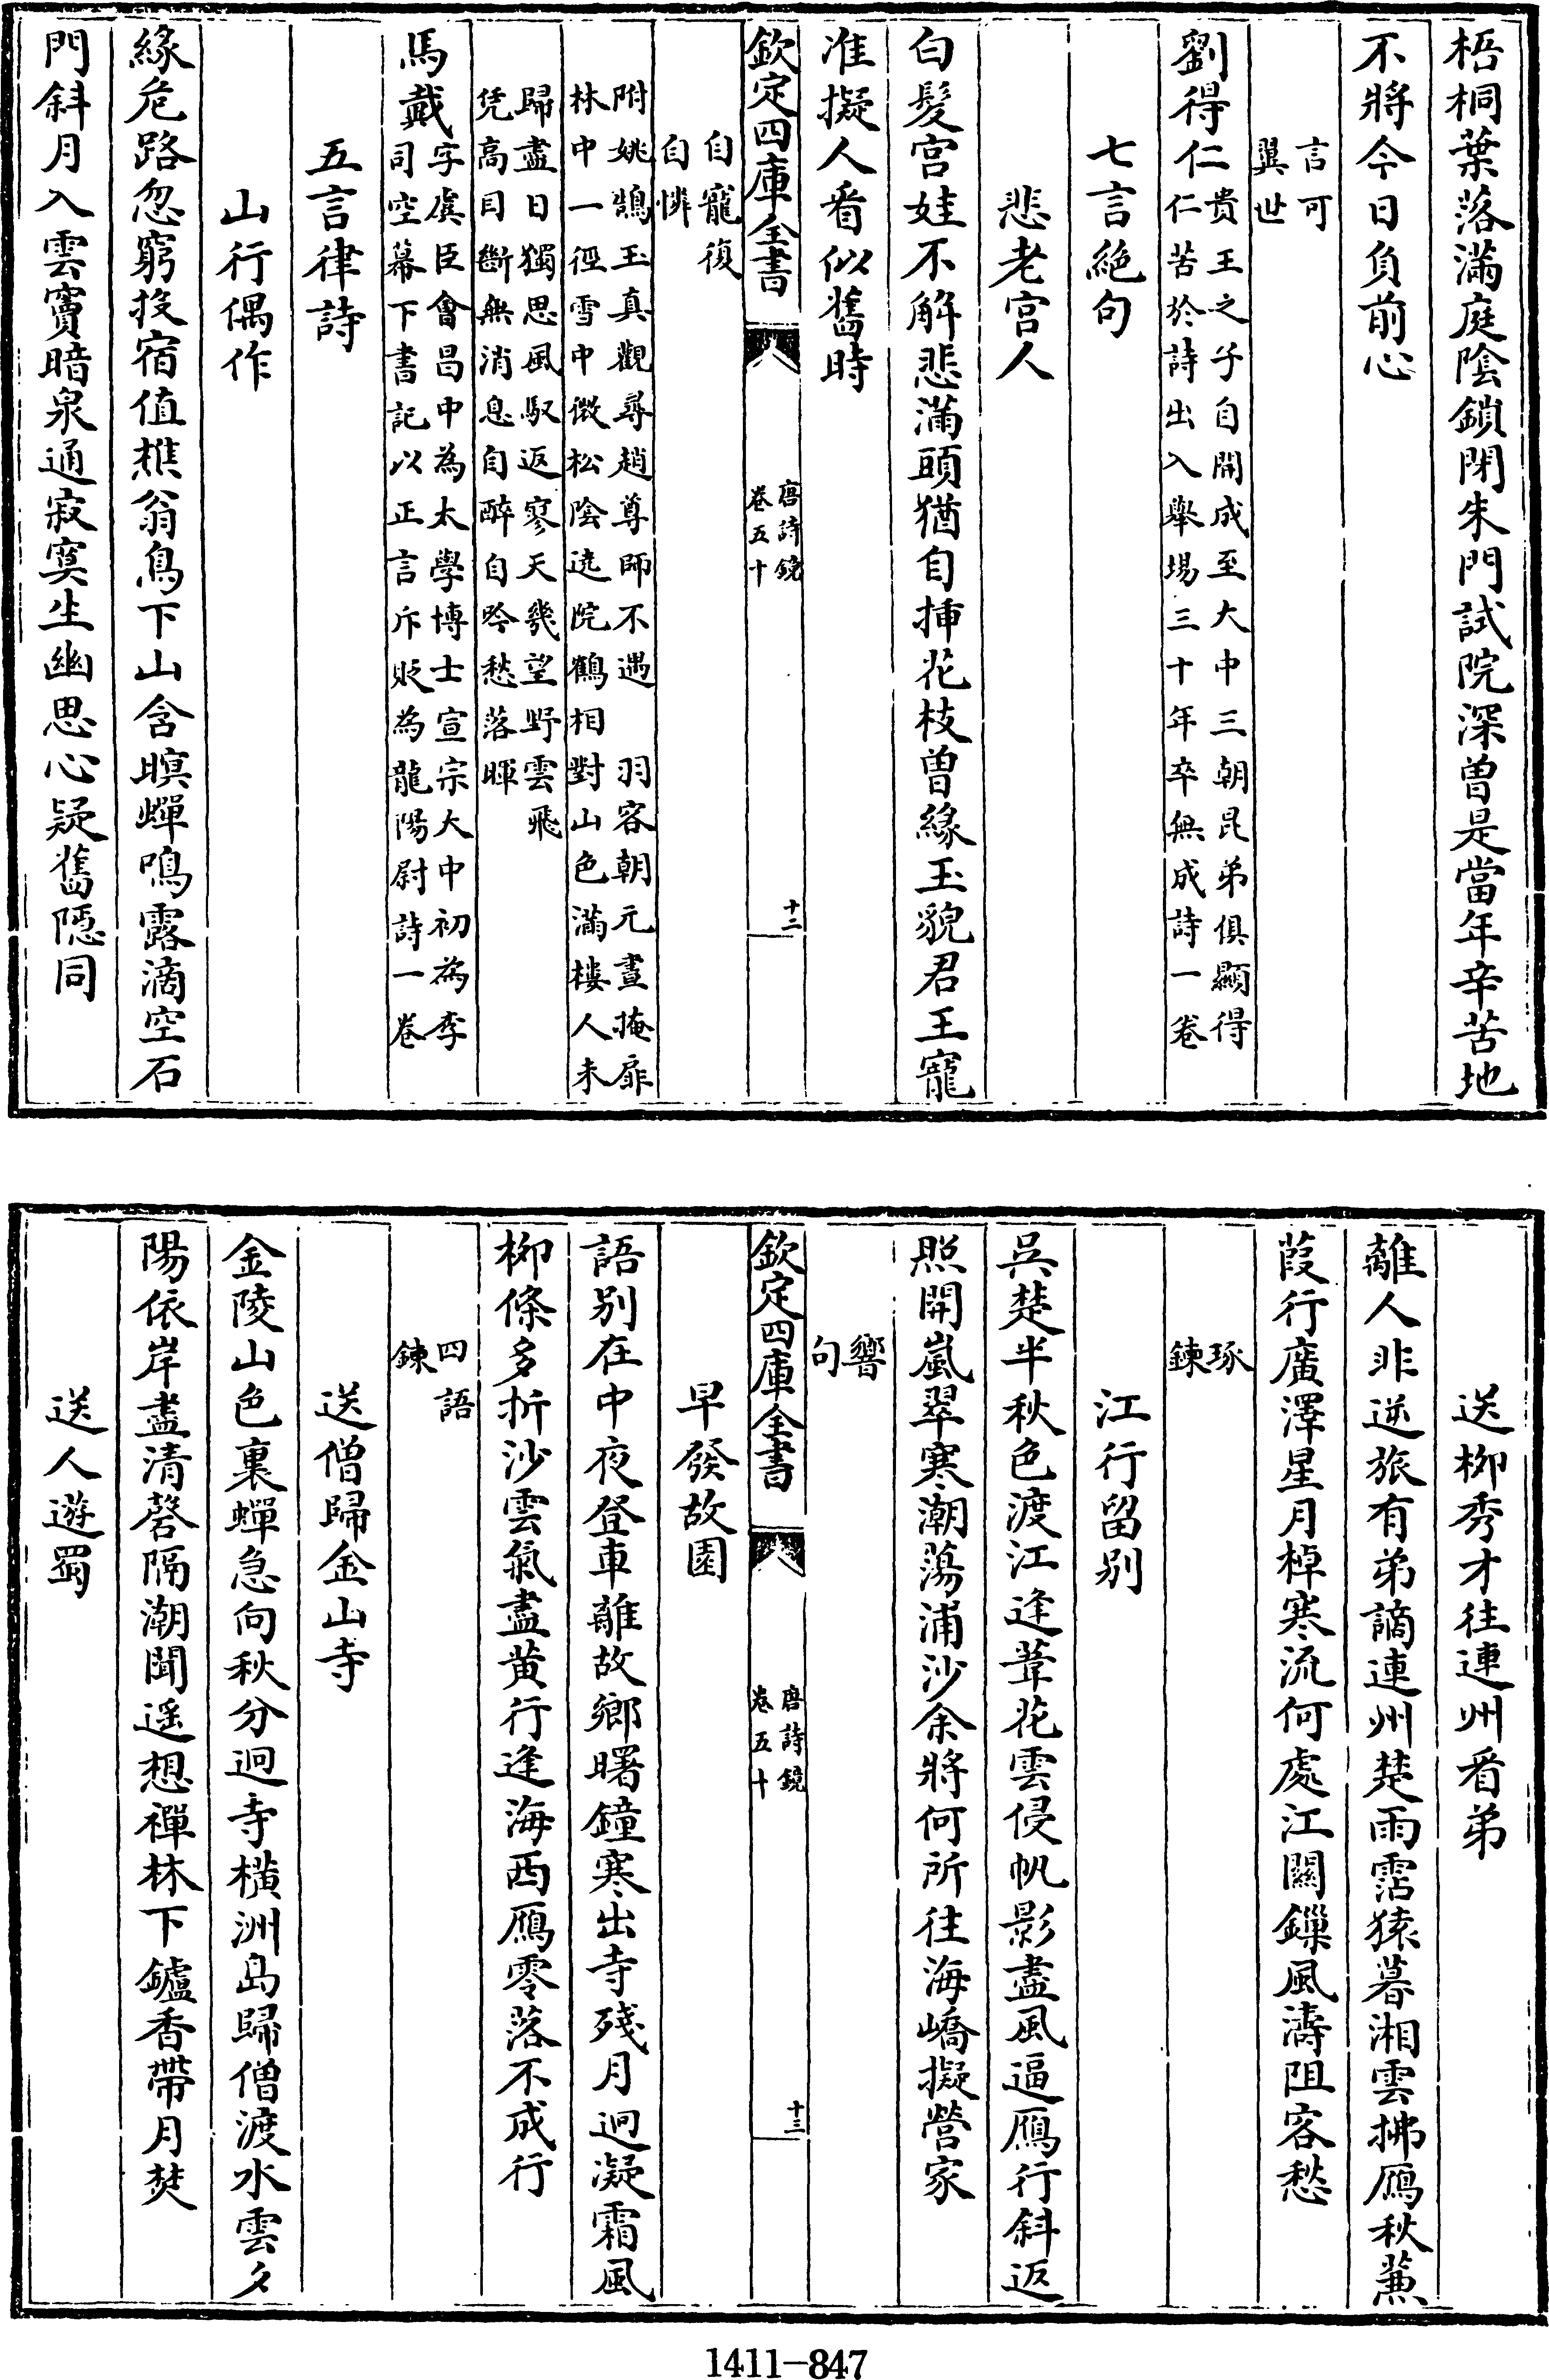 梧桐葉落滿庭陰鎖閉朱門試院深曽是當年辛苦地
不將今日負前心
言可
巽世
劉得仁
貴王之子自開成至大中三朝昆弟俱顯得
仁苦於詩出入舉塲三十年卒無成詩一卷
七言絶句
悲老宫人
白髮宫娃不解悲滿頭猶自挿花枝曽緣玉貌君王寵
准擬人看似舊時
自寵復
自憐
欽定四庫全書
唐詩鏡
卷五十
十二
附姚鵠玉真觀尋趙尊師不遇 羽客朝元晝掩扉
林中一徑雪中微松陰遶院鶴相對山色滿樓人未
歸盡日獨思風馭返寥天幾望野雲飛
凭高目斷無消息自醉自吟愁落暉
馬戴
字虞臣會昌中為太學博士宣宗大中初為李
司空幕下書記以正言斥貶為龍陽尉詩一卷
五言律詩
山行偶作
緣危路忽窮投宿值樵翁鳥下山含暝蟬鳴露滴空石
門斜月入雲竇暗泉通寂寞生幽思心疑舊隱同
送柳秀才往連州看弟
離人非逆旅有弟謫連州楚雨霑猿暮湘雲拂鴈秋蒹
葭行廣澤星月棹寒流何處江關鏁風濤阻客愁
琢
鍊
江行留别
吳楚半秋色渡江逢葦花雲侵帆影盡風逼鴈行斜返
照開嵐翠寒潮蕩浦沙余將何所往海嶠擬營家
響
句
欽定四庫全書
唐詩鏡
卷五十
十三
早發故園
語别在中夜登車離故鄉曙鐘寒出寺殘月迥凝霜風
柳條多折沙雲氣盡黄行逢海西鴈零落不成行
四語
鍊
送僧歸金山寺
金陵山色裏蟬急向秋分迥寺横洲島歸僧渡水雲夕
陽依岸盡清磬隔潮聞遥想禪林下鑪香帶月焚
送人遊蜀
1411-847